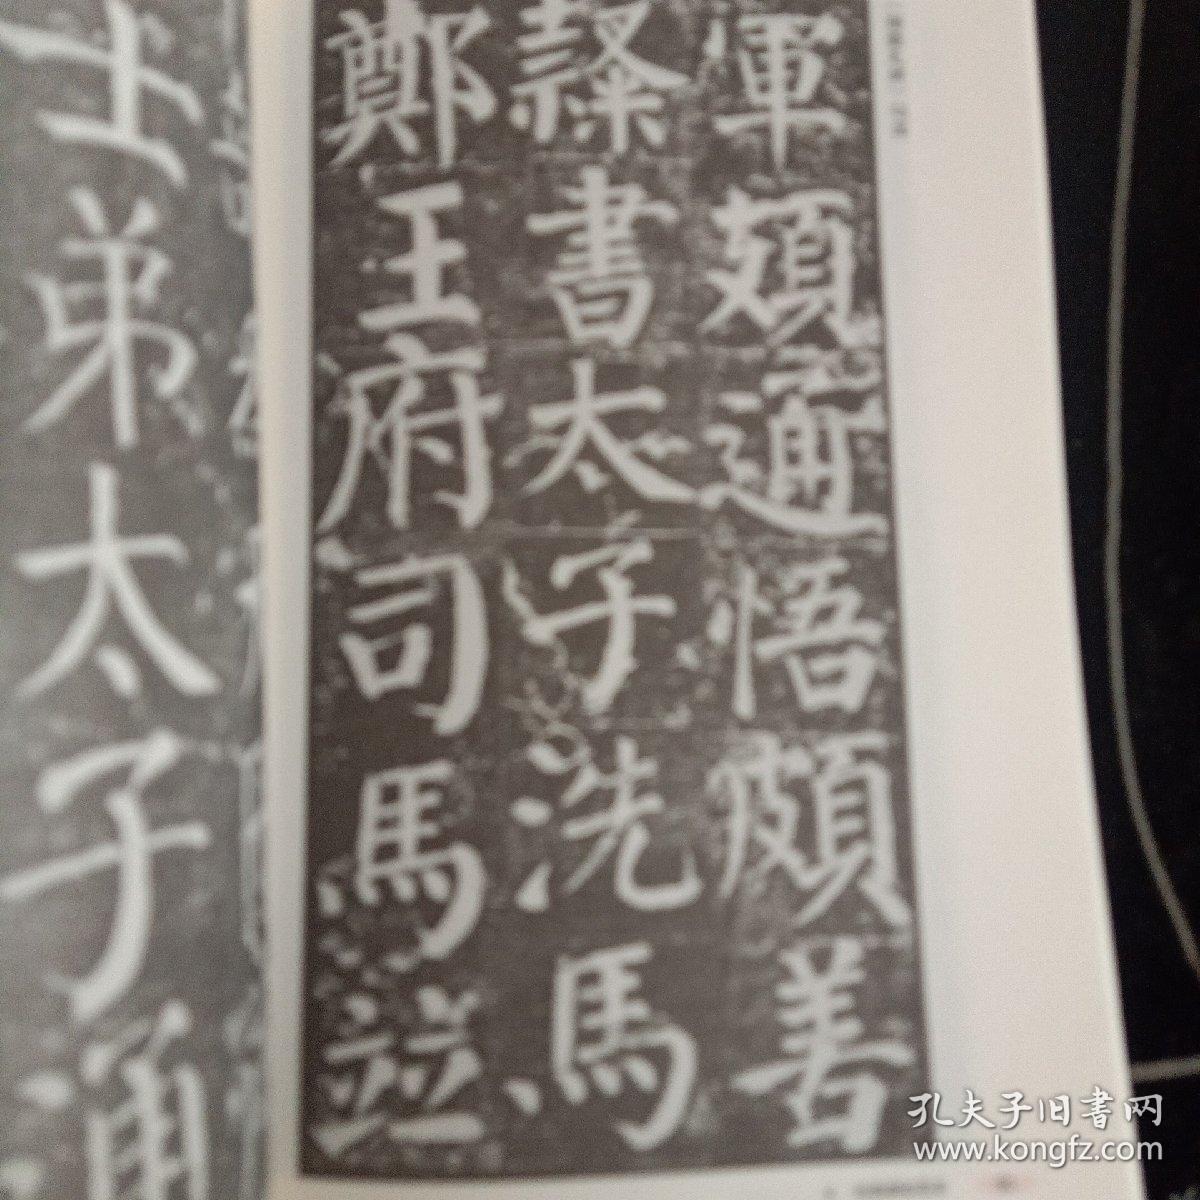 軍頍通悟頗善
隸書太子洗馬
鄭王府司馬並
士弟太子通
孔夫子旧書网
www.kongfz.com